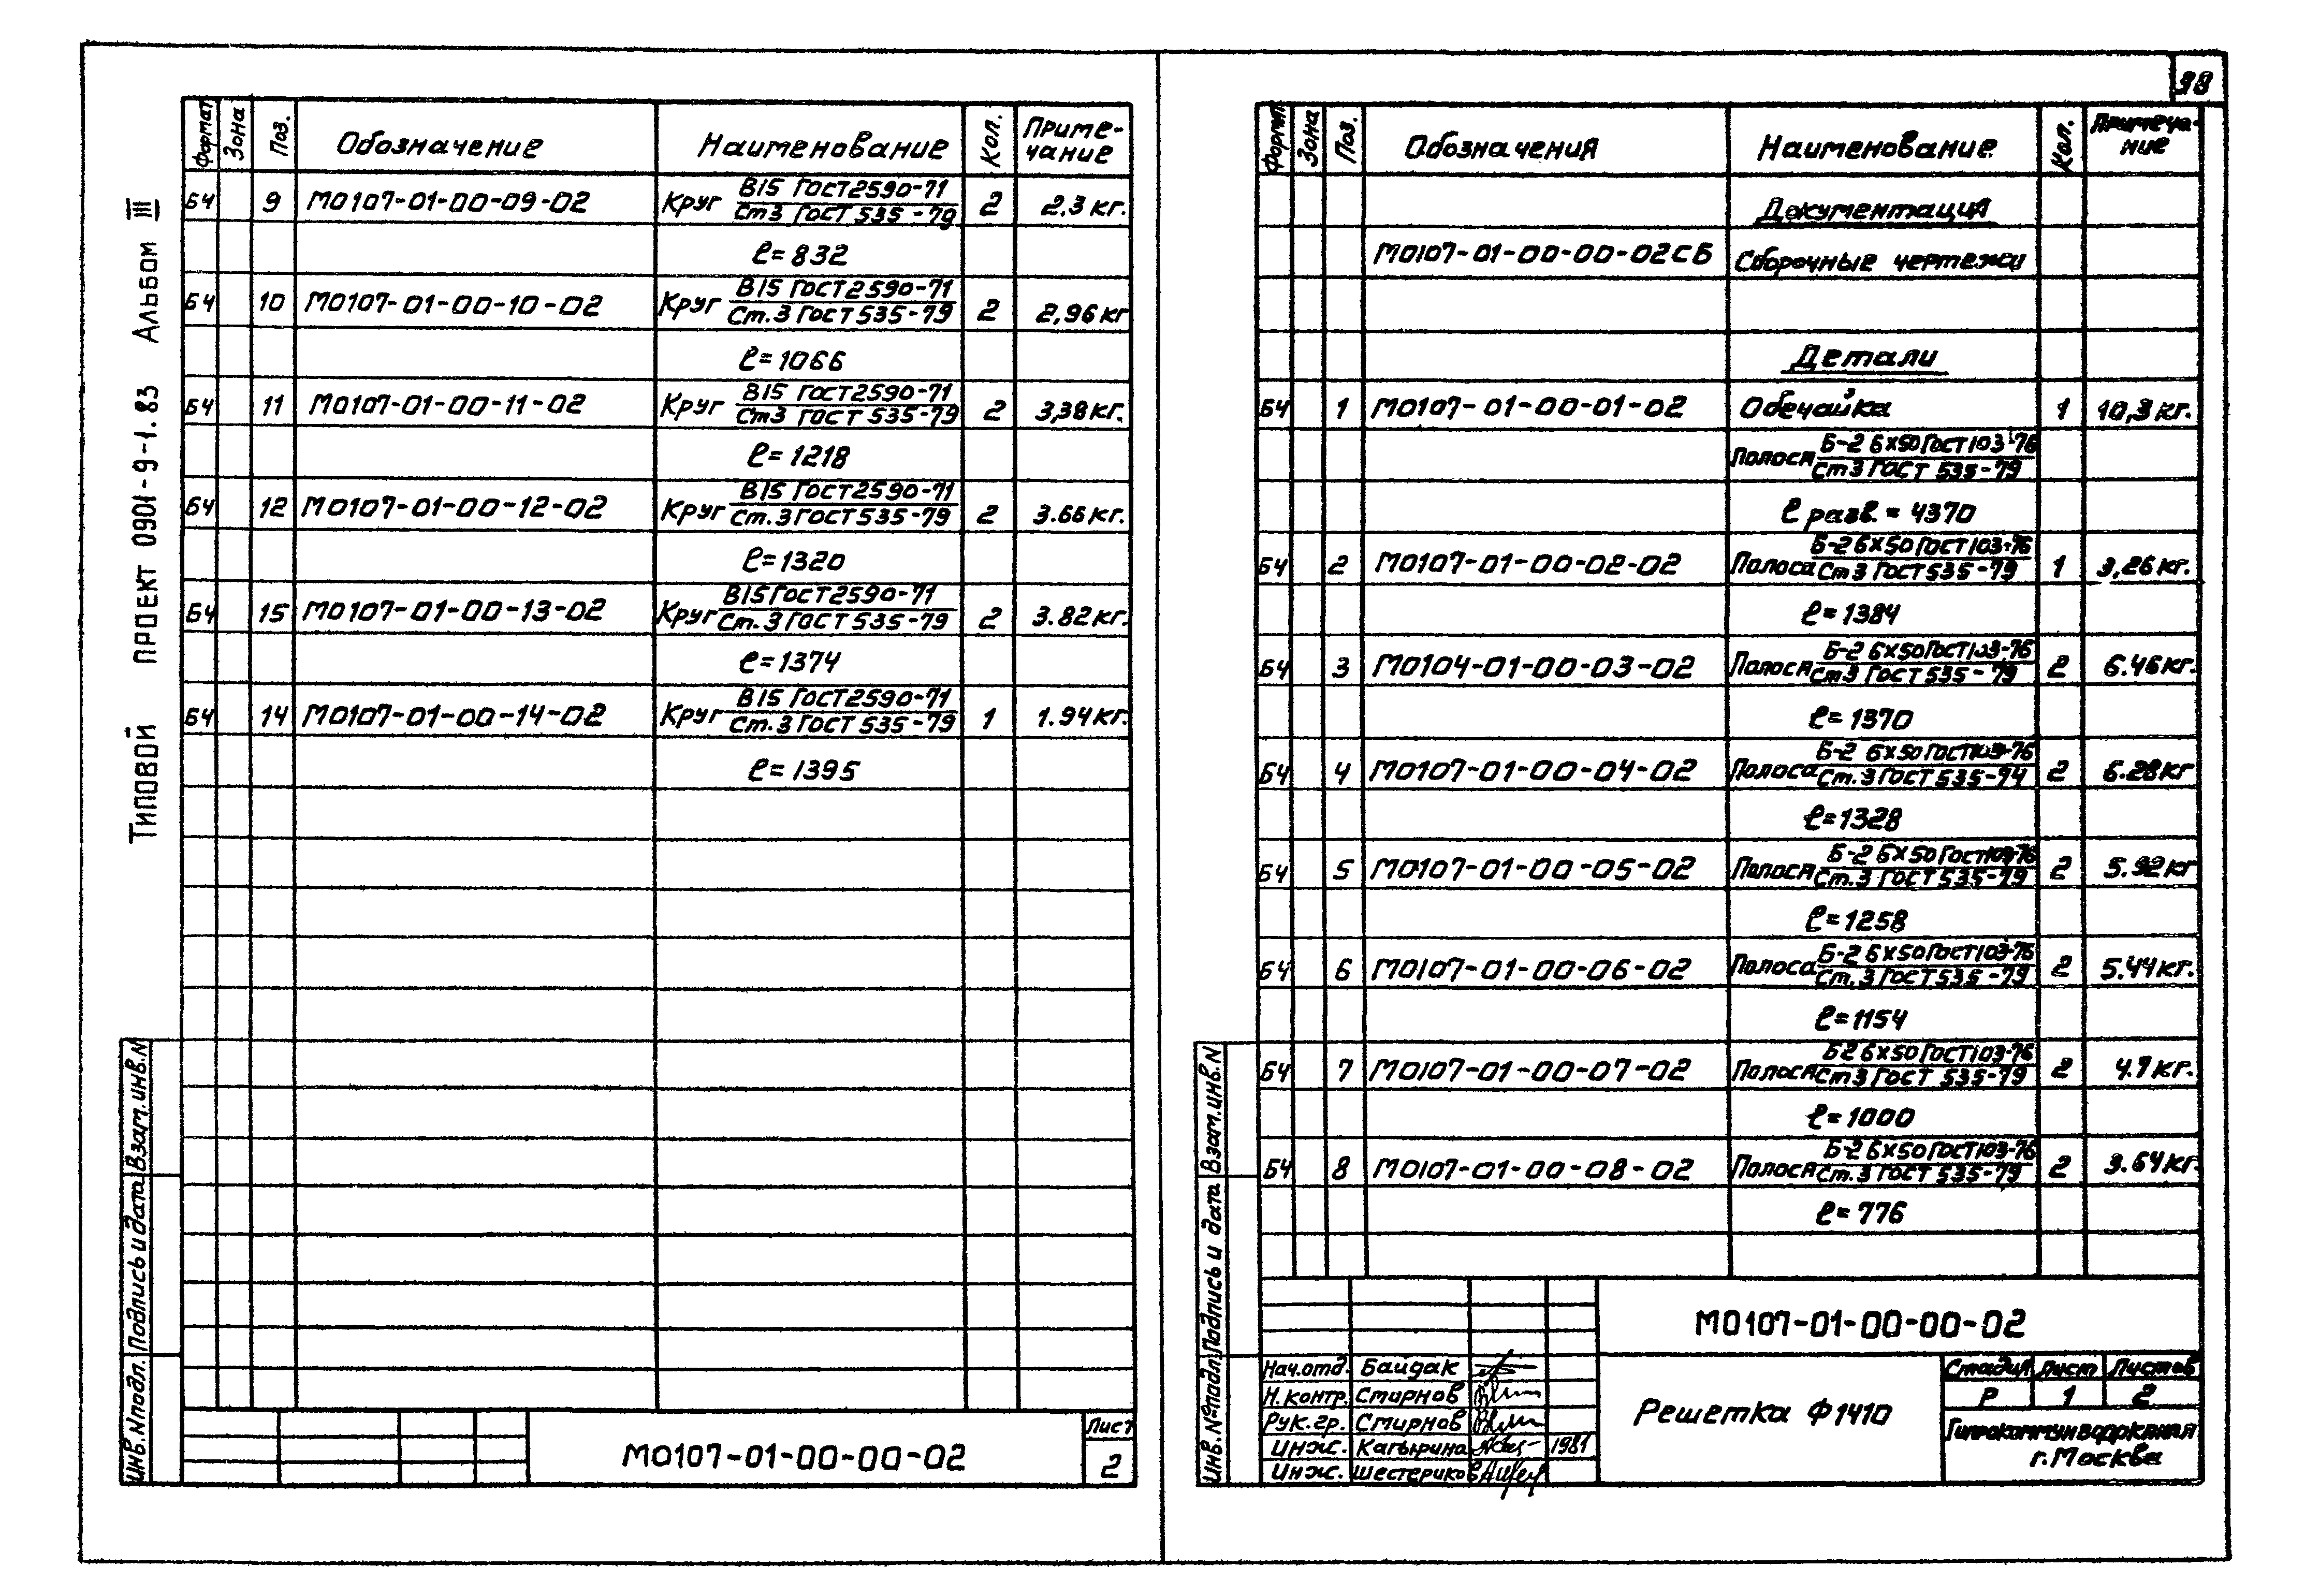 98
Типовой проект 0901-9-1.83 Альбом III
Формат Зона Поз. Обозначение Наименование Кол. Приме-
чание
Б4 9 М0107-01-00-09-02 Круг В15 ГОСТ2590-71 2 2,3 кг.
Ст3 ГОСТ 535-79
ℓ=832
Б4 10 М0107-01-00-10-02 Круг В15 ГОСТ2590-71 2 2,96 кг
Ст.3 ГОСТ 535-79
ℓ=1066
Б4 11 М0107-01-00-11-02 Круг В15 ГОСТ2590-71 2 3,38 кг.
Ст3 ГОСТ 535-79
ℓ=1218
Б4 12 М0107-01-00-12-02 Круг В15 ГОСТ2590-71 2 3.66 кг.
Ст.3 ГОСТ 535-79
ℓ=1320
Б4 15 М0107-01-00-13-02 Круг В15 ГОСТ2590-71 2 3.82 кг.
Ст.3 ГОСТ 535-79
ℓ=1374
Б4 14 М0107-01-00-14-02 Круг В15 ГОСТ2590-71 1 1.94 кг.
Ст.3 ГОСТ 535-79
ℓ=1395
Инв.№подл. Подпись и дата Взам.инв.N
М0107-01-00-00-02
Лист
2
Формат Зона Поз. Обозначения Наименование Кол. Примеча-
ние
Документация
М0107-01-00-00-02СБ Сборочные чертежи
Детали
Б4 1 М0107-01-00-01-02 Обечайка 1 10,3 кг.
Полоса Б-2 6х50 ГОСТ103-76
Ст3 ГОСТ 535-79
ℓ разв. = 4370
Б4 2 М0107-01-00-02-02 Полоса Б-2 6х50 ГОСТ103-76 1 3,26 кг.
Ст3 ГОСТ 535-79
ℓ=1384
Б4 3 М0104-01-00-03-02 Полоса Б-2 6х50 ГОСТ103-76 2 6.46 кг.
Ст3 ГОСТ 535-79
ℓ=1370
Б4 4 М0107-01-00-04-02 Полоса Б-2 6х50 ГОСТ103-76 2 6.28 кг
Ст.3 ГОСТ 535-74
ℓ=1328
Б4 5 М0107-01-00-05-02 Полоса Б-2 6х50 ГОСТ103-76 2 5.92 кг
Ст.3 ГОСТ 535-79
ℓ=1258
Б4 6 М0107-01-00-06-02 Полоса Б-2 6х50 ГОСТ103-76 2 5.44 кг.
Ст.3 ГОСТ 535-79
ℓ=1154
Б4 7 М0107-01-00-07-02 Полоса Б2 6х50 ГОСТ103-76 2 4.7 кг.
Ст3 ГОСТ 535-79
ℓ=1000
Б4 8 М0107-01-00-08-02 Полоса Б-2 6х50 ГОСТ103-76 2 3.64 кг.
Ст.3 ГОСТ 535-79
ℓ=776
Инв.№подл. Подпись и дата Взам.инв.N
М0107-01-00-00-02
Нач.отд. Байдак
Н.контр. Смирнов
Рук.гр. Смирнов
Инж. Кагырина 1981
Инж. Шестериков
Решетка Ф1410
Стадия Лист Листов
Р 1 2
Гипрокоммунводоканал
г.Москва